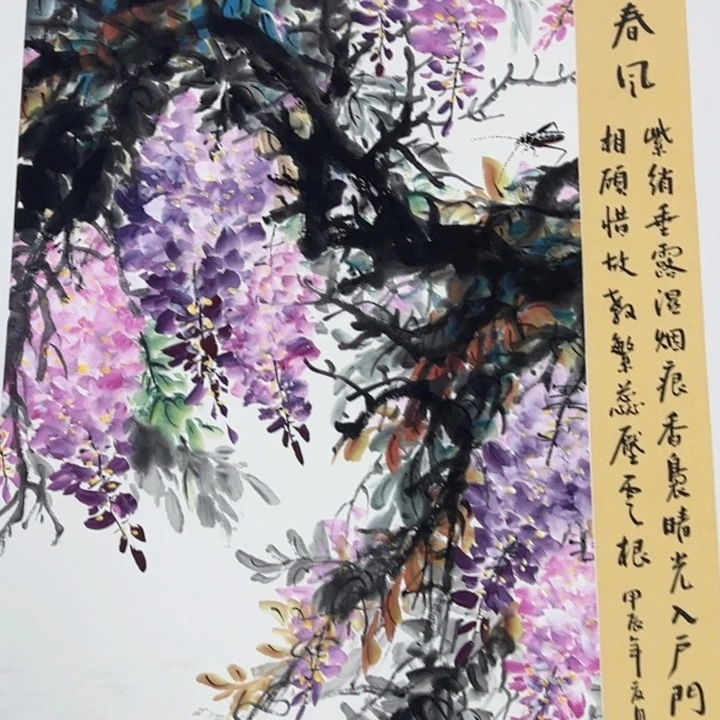 春风
紫绡垂露湿烟痕香袅晴光入户門
相顾惜故教繁蕊壓雲根
甲辰年